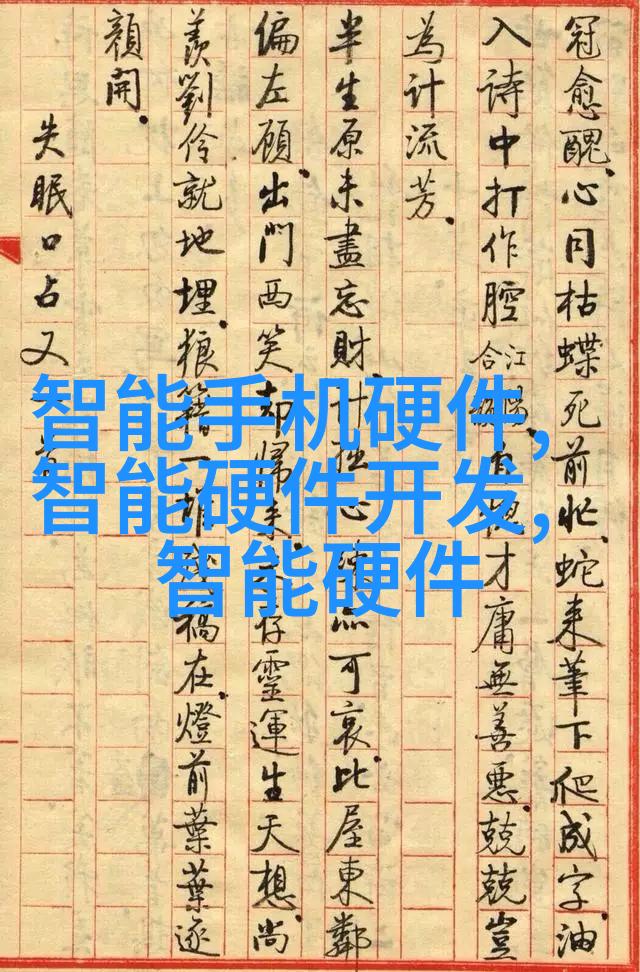 冠愈醜、心同枯蝶死前忙、蛇来筆下爬成字、油
入詩中打作腔江陽合才庸無善惡、兢兢豈
為計流芳、
半生原未盡忘財、計拙心可哀、比屋東鄰
偏左顧、出門西笑却歸来存靈運生天想、尚
羨劉伶就地埋、狼籍一堆稿在、燈前葉葉逐
顏開、
失眠口占又
智能手机硬件,
智能硬件开发,
智能硬件